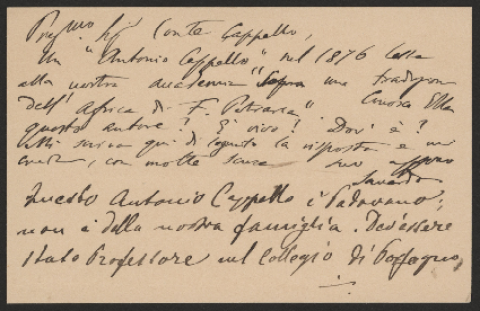 Preg.mo Sig. Conte Cappello,
Un "Antonio Cappello" nel 1876 lesse
alla nostra accademia "Sopra una traduzione
dell'Africa di F. Petrarca" Conosce Ella
questo autore? È vivo? Dov'è?
Mi scriva qui di seguito la risposta e mi
creda, con molte scuse suo
Questo Antonio Cappello è Padovano;
non è della nostra famiglia. Dev'essere
stato Professore nel Collegio di